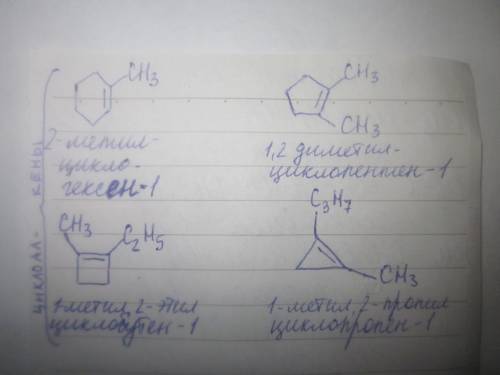 ЦИКЛОАЛ- КЕНЫ
CH3
2-метил-
цикло-
гексен-1
CH3
CH3
1,2 диметил-
циклопентен-1
CH3
C2H5
1-метил, 2-этил
циклобутен-1
C3H7
CH3
1-метил, 2-пропил
циклопропен-1